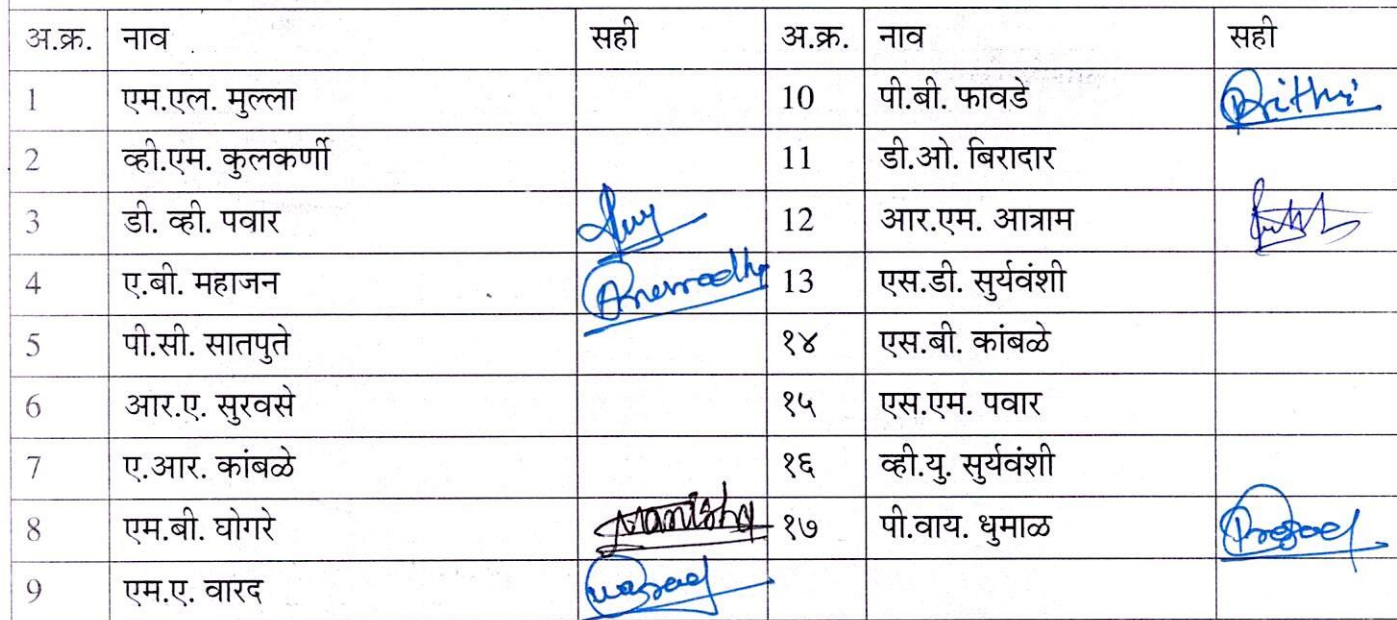 अ.क्र. नाव सही अ.क्र. नाव सही
1 एम.एल. मुल्ला 10 पी.बी. फावडे Prithvi
2 व्ही.एम. कुलकर्णी 11 डी.ओ. बिरादार
3 डी. व्ही. पवार 12 आर.एम. आत्राम
4 ए.बी. महाजन 13 एस.डी. सुर्यवंशी
5 पी.सी. सातपुते १४ एस.बी. कांबळे
6 आर.ए. सुरवसे १५ एस.एम. पवार
7 ए.आर. कांबळे १६ व्ही.यु. सुर्यवंशी
8 एम.बी. घोगरे Manisha १७ पी.वाय. धुमाळ
9 एम.ए. वारद